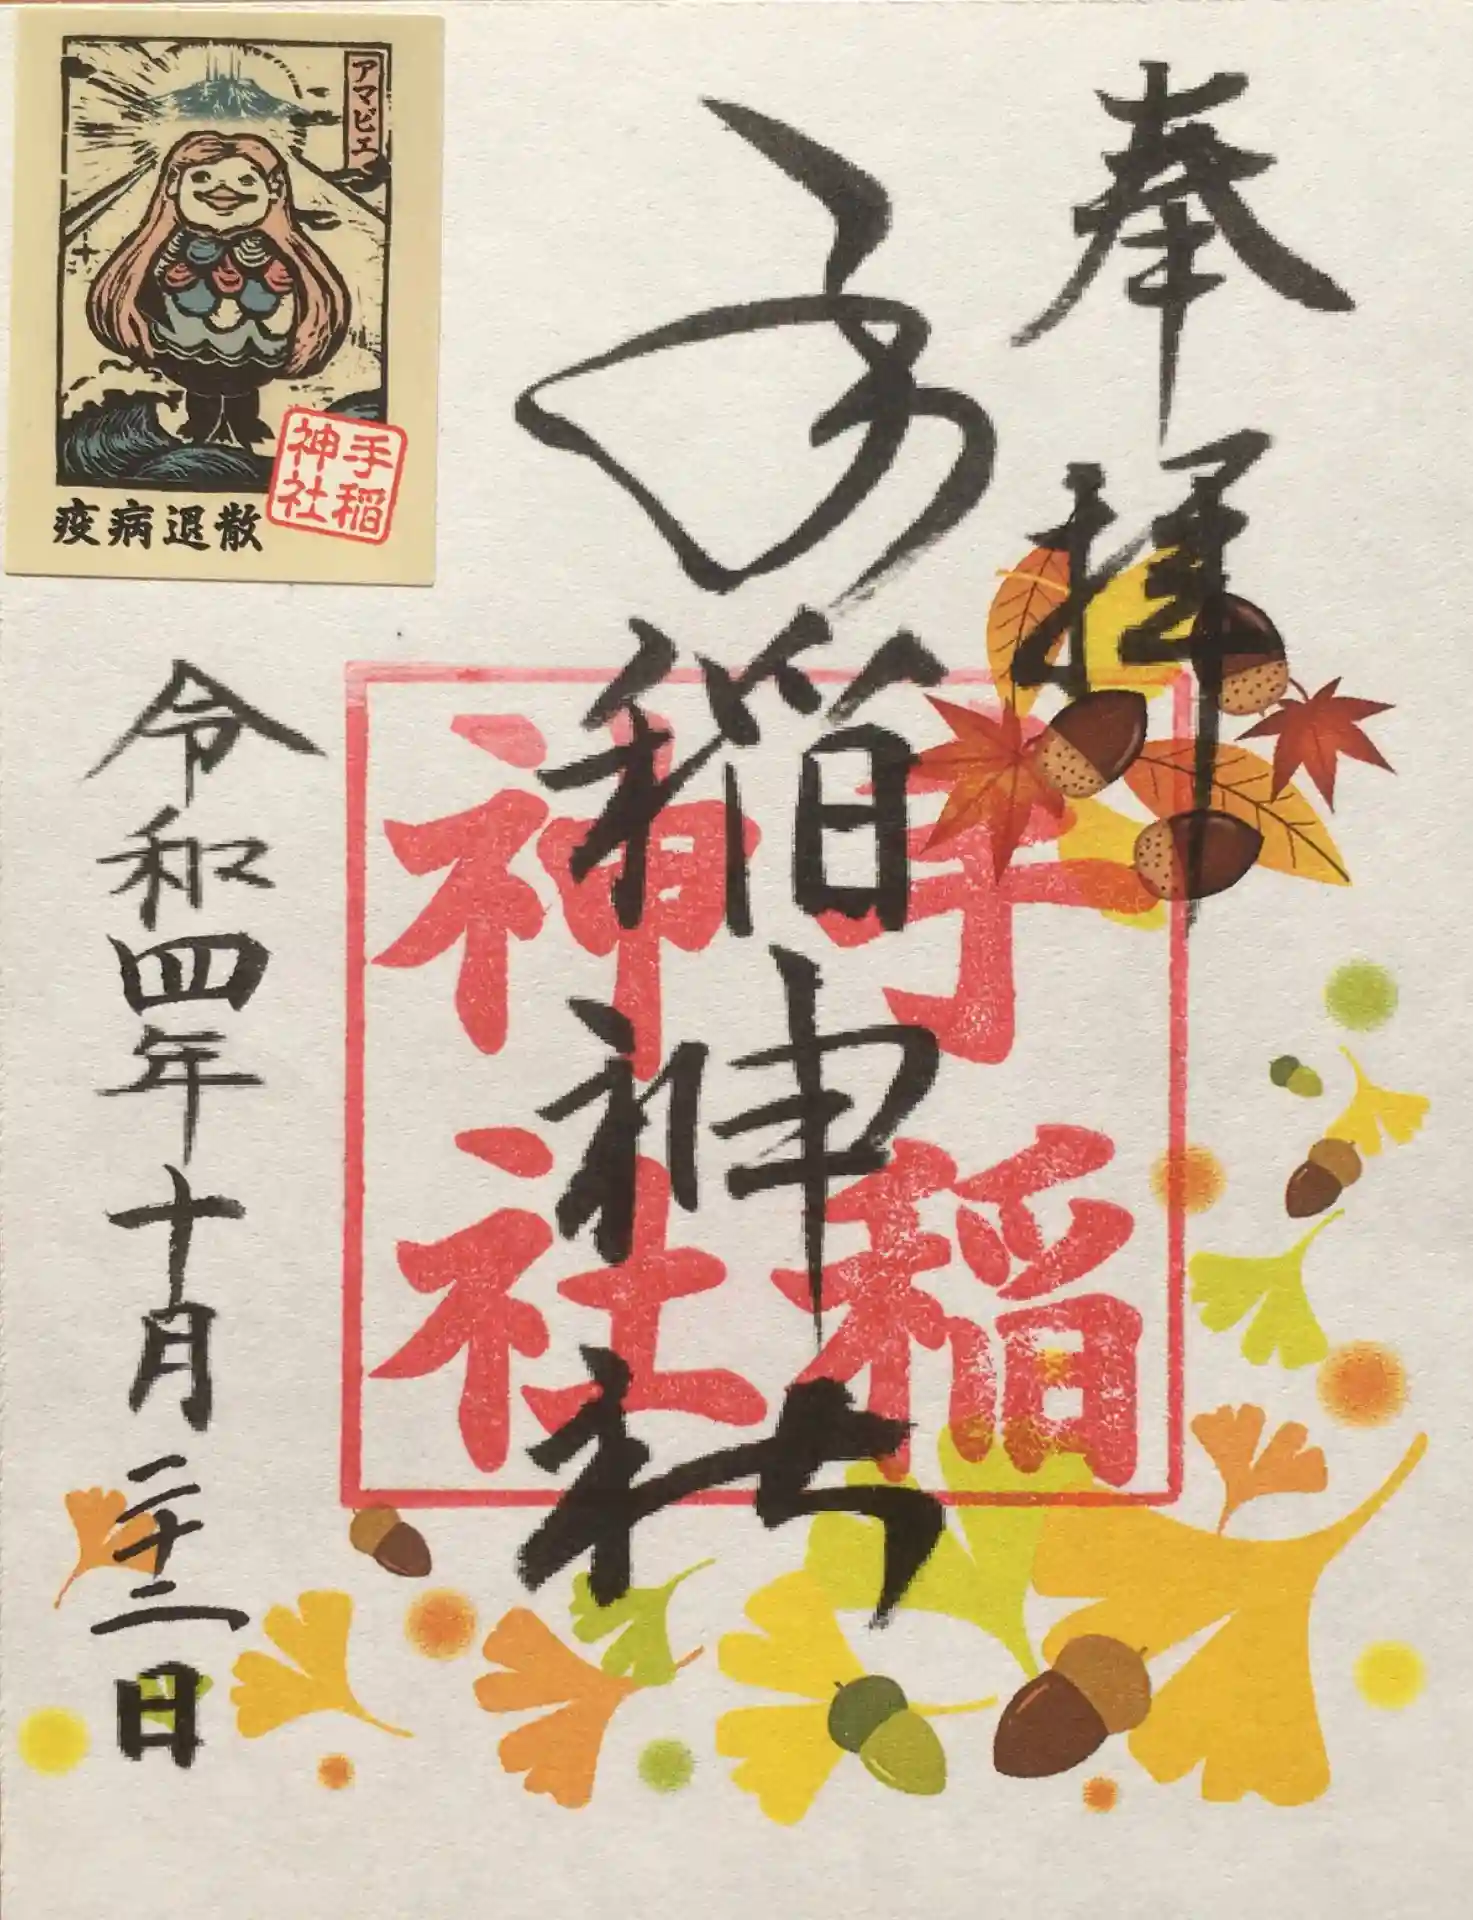 奉拝
手稲神社
手稲
神社
令和四年十月二十二日
アマビエ
疫病退散
手稲
神社